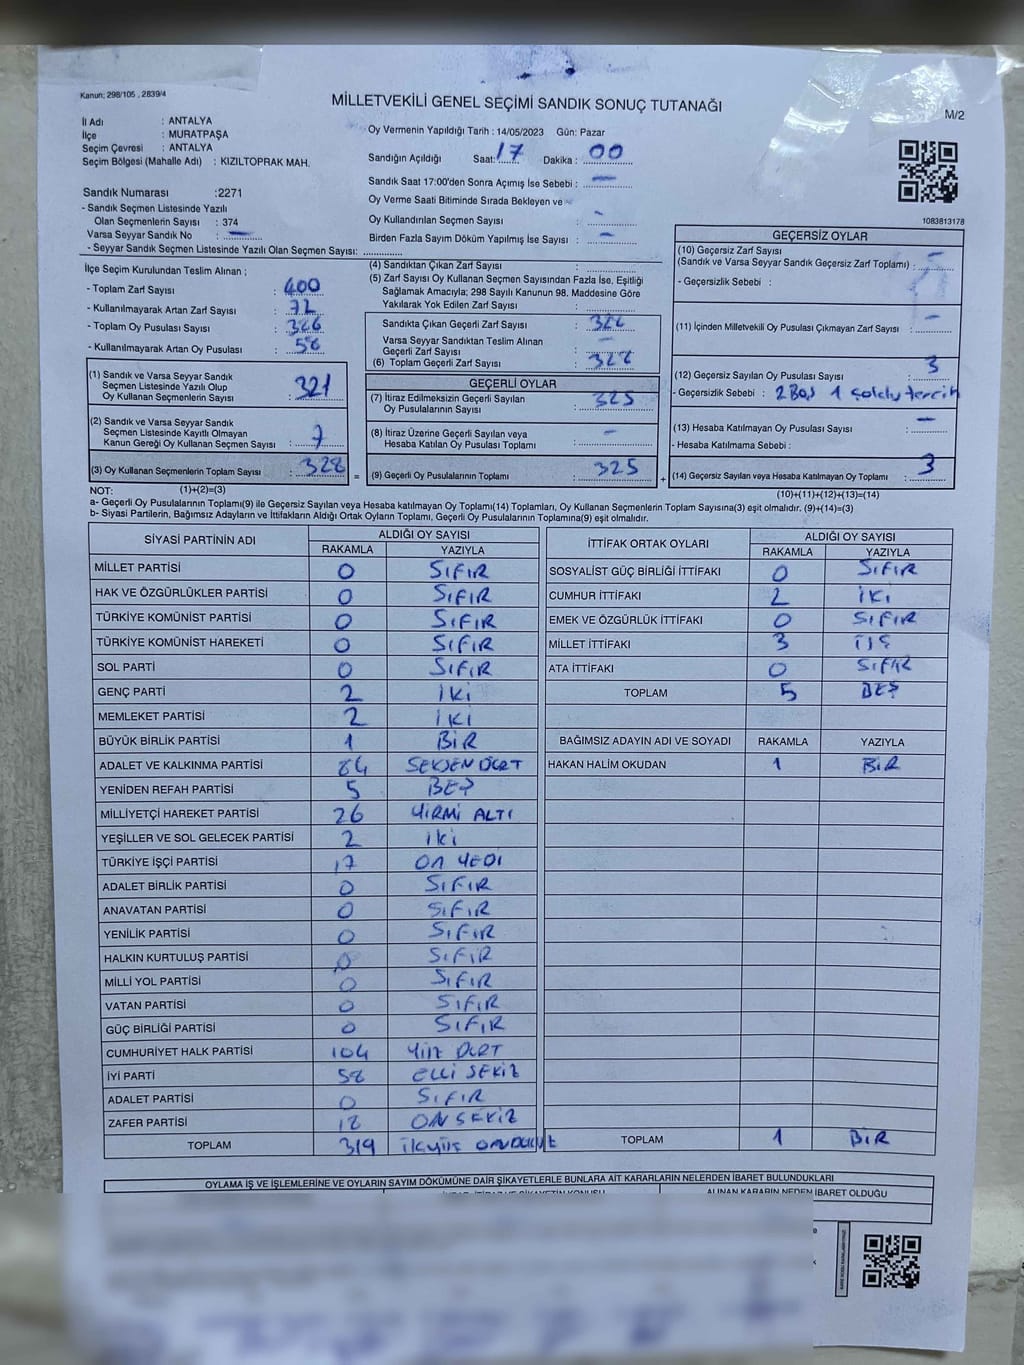 Kanun: 298/105 , 2839/4
MİLLETVEKİLİ GENEL SEÇİMİ SANDIK SONUÇ TUTANAĞI
M/2
İl Adı : ANTALYA
İlçe : MURATPAŞA
Seçim Çevresi : ANTALYA
Seçim Bölgesi (Mahalle Adı) : KIZILTOPRAK MAH.
Sandık Numarası :2271
- Sandık Seçmen Listesinde Yazılı
Olan Seçmenlerin Sayısı : 374
Varsa Seyyar Sandık No : —
- Seyyar Sandık Seçmen Listesinde Yazılı Olan Seçmen Sayısı: ..............
Oy Vermenin Yapıldığı Tarih : 14/05/2023 Gün: Pazar
Sandığın Açıldığı Saat: 17 Dakika : 00
Sandık Saat 17:00'den Sonra Açımış İse Sebebi : —
Oy Verme Saati Bitiminde Sırada Bekleyen ve
Oy Kullandırılan Seçmen Sayısı : -
Birden Fazla Sayım Döküm Yapılmış İse Sayısı : -
1083813178
İlçe Seçim Kurulundan Teslim Alınan ;
- Toplam Zarf Sayısı : 400
- Kullanılmayarak Artan Zarf Sayısı : 72
- Toplam Oy Pusulası Sayısı :
- Kullanılmayarak Artan Oy Pusulası :
(1) Sandık ve Varsa Seyyar Sandık
Seçmen Listesinde Yazılı Olup
Oy Kullanan Seçmenlerin Sayısı : 321
(2) Sandık ve Varsa Seyyar Sandık
Seçmen Listesinde Kayıtlı Olmayan
Kanun Gereği Oy Kullanan Seçmen Sayısı : 7
(3) Oy Kullanan Seçmenlerin Toplam Sayısı : 328
(1)+(2)=(3)
(4) Sandıktan Çıkan Zarf Sayısı : ..............
(5) Zarf Sayısı Oy Kullanan Seçmen Sayısından Fazla İse, Eşitliği
Sağlamak Amacıyla; 298 Sayılı Kanunun 98. Maddesine Göre
Yakılarak Yok Edilen Zarf Sayısı : ..............
Sandıkta Çıkan Geçerli Zarf Sayısı : 328
Varsa Seyyar Sandıktan Teslim Alınan
Geçerli Zarf Sayısı : —
(6) Toplam Geçerli Zarf Sayısı : 328
GEÇERLİ OYLAR
(7) İtiraz Edilmeksizin Geçerli Sayılan
Oy Pusulalarının Sayısı : 325
(8) İtiraz Üzerine Geçerli Sayılan veya
Hesaba Katılan Oy Pusulası Toplamı : -
= (9) Geçerli Oy Pusulalarının Toplamı : 325
GEÇERSİZ OYLAR
(10) Geçersiz Zarf Sayısı
(Sandık ve Varsa Seyyar Sandık Geçersiz Zarf Toplamı) : -
- Geçersizlik Sebebi :
(11) İçinden Milletvekili Oy Pusulası Çıkmayan Zarf Sayısı : -
(12) Geçersiz Sayılan Oy Pusulası Sayısı : 3
- Geçersizlik Sebebi : 2 Boş 1 çoklu tercih
(13) Hesaba Katılmayan Oy Pusulası Sayısı : —
- Hesaba Katılmama Sebebi :
+ (14) Geçersiz Sayılan veya Hesaba Katılmayan Oy Toplamı : 3
(10)+(11)+(12)+(13)=(14)
NOT:
a- Geçerli Oy Pusulalarının Toplamı(9) ile Geçersiz Sayılan veya Hesaba katılmayan Oy Toplamı(14) Toplamları, Oy Kullanan Seçmenlerin Toplam Sayısına(3) eşit olmalıdır. (9)+(14)=(3)
b- Siyasi Partilerin, Bağımsız Adayların ve İttifakların Aldığı Ortak Oyların Toplamı, Geçerli Oy Pusulalarının Toplamına(9) eşit olmalıdır.
SİYASİ PARTİNİN ADI ALDIĞI OY SAYISI
RAKAMLA YAZIYLA
MİLLET PARTİSİ 0 SIFIR
HAK VE ÖZGÜRLÜKLER PARTİSİ 0 SIFIR
TÜRKİYE KOMÜNİST PARTİSİ 0 SIFIR
TÜRKİYE KOMÜNİST HAREKETİ 0 SIFIR
SOL PARTİ 0 SIFIR
GENÇ PARTİ 2 İKİ
MEMLEKET PARTİSİ 2 İKİ
BÜYÜK BİRLİK PARTİSİ 1 BİR
ADALET VE KALKINMA PARTİSİ 84 SEKSEN DÖRT
YENİDEN REFAH PARTİSİ 5 BEŞ
MİLLİYETÇİ HAREKET PARTİSİ 26 YİRMİ ALTI
YEŞİLLER VE SOL GELECEK PARTİSİ 2 iki
TÜRKİYE İŞÇİ PARTİSİ 17 ON YEDİ
ADALET BİRLİK PARTİSİ 0 SIFIR
ANAVATAN PARTİSİ 0 SIFIR
YENİLİK PARTİSİ 0 SIFIR
HALKIN KURTULUŞ PARTİSİ 0 SIFIR
MİLLİ YOL PARTİSİ 0 SIFIR
VATAN PARTİSİ 0 SIFIR
GÜÇ BİRLİĞİ PARTİSİ 0 SIFIR
CUMHURİYET HALK PARTİSİ 104 YÜZ DÖRT
İYİ PARTİ 58 ELLİ SEKİZ
ADALET PARTİSİ 0 SIFIR
ZAFER PARTİSİ 18 ON SEKİZ
TOPLAM 319
İTTİFAK ORTAK OYLARI ALDIĞI OY SAYISI
RAKAMLA YAZIYLA
SOSYALİST GÜÇ BİRLİĞİ İTTİFAKI 0 SIFIR
CUMHUR İTTİFAKI 2 İKİ
EMEK VE ÖZGÜRLÜK İTTİFAKI 0 SIFIR
MİLLET İTTİFAKI 3 ÜÇ
ATA İTTİFAKI 0 SIFIR
TOPLAM 5 BEŞ
BAĞIMSIZ ADAYIN ADI VE SOYADI RAKAMLA YAZIYLA
HAKAN HALİM OKUDAN 1 BİR
TOPLAM 1 BİR
OYLAMA İŞ VE İŞLEMLERİNE VE OYLARIN SAYIM DÖKÜMÜNE DAİR ŞİKAYETLERLE BUNLARA AİT KARARLARIN NELERDEN İBARET BULUNDUKLARI
ALINAN KARARIN NEDEN İBARET OLDUĞU